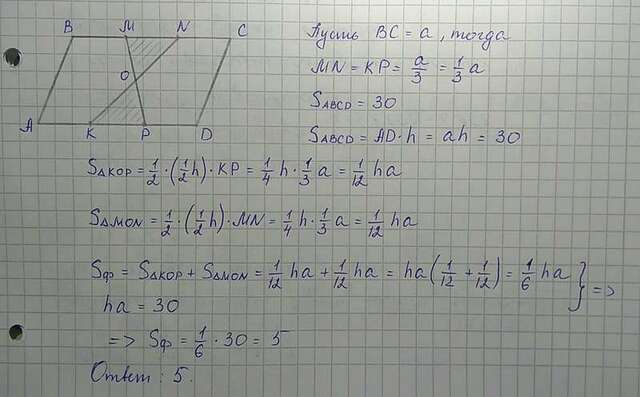 B M N C
O
A K P D
Пусть BC = a, тогда
MN = KP = a/3 = 1/3 a
S ABCD = 30
S ABCD = AD · h = ah = 30
S△KOP = 1/2 · (1/2 h) · KP = 1/4 h · 1/3 a = 1/12 ha
S△MON = 1/2 · (1/2 h) · MN = 1/4 h · 1/3 a = 1/12 ha
Sф = S△KOP + S△MON = 1/12 ha + 1/12 ha = ha(1/12 + 1/12) = 1/6 ha } =>
ha = 30
=> Sф = 1/6 · 30 = 5
Ответ: 5.